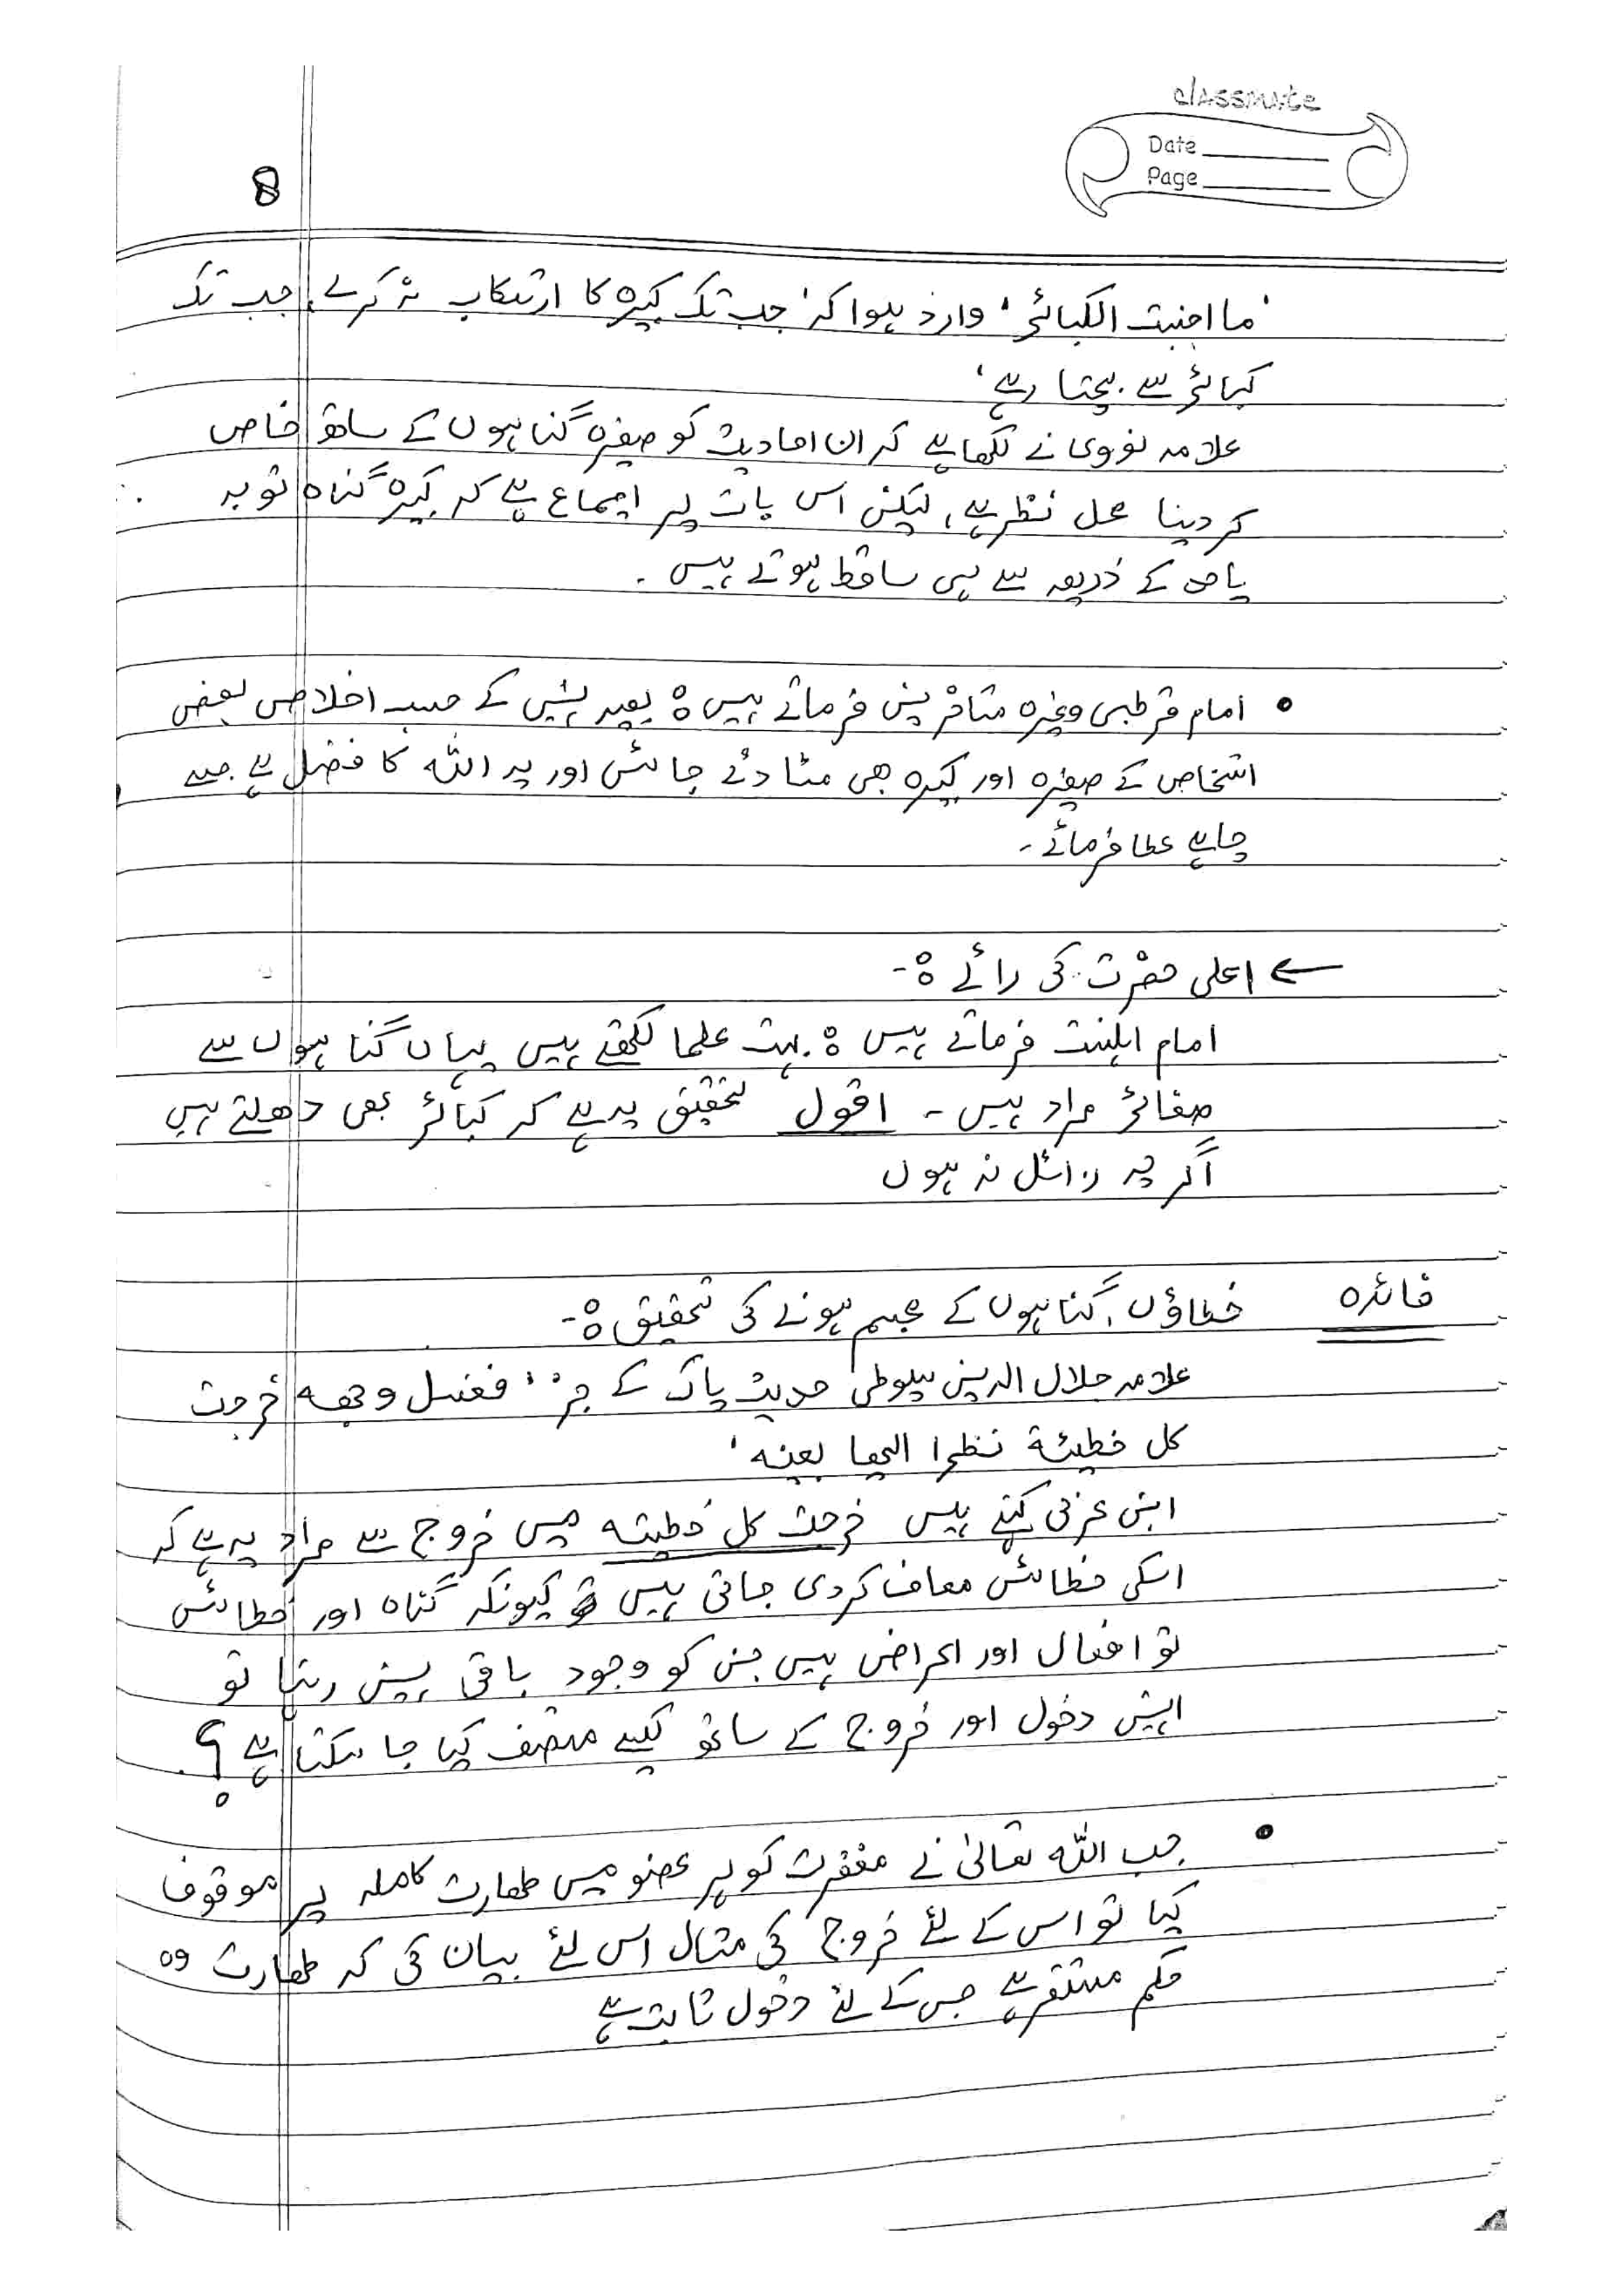 classmate
Date
Page
8
'ما اجنبت الکبائر' وارد ہوا کہ 'جب تک کبیرہ کا ارتکاب نہ کرے، جب تک
کبائر سے بچتا رہے'
علامہ نووی نے لکھا ہے کہ ان احادیث کو صغیرہ گناہوں کے ساتھ خاص
کر دینا محل نظر ہے، لیکن اس بات پر اجماع ہے کہ کبیرہ گناہ توبہ
یا حد کے ذریعہ سے ہی ساقط ہوتے ہیں ۔
• امام قرطبی وغیرہ متاخرین فرماتے ہیں ہ بعید نہیں کے حسب اخلاص بعض
اشخاص کے صغیرہ اور کبیرہ بھی مٹا دئے جائیں اور یہ اللہ کا فضل ہے جسے
چاہے عطا فرمائے ۔
← اعلی حضرت کی رائے ہ-
امام اہلسنت فرماتے ہیں ہ بہت علما لکھتے ہیں یہاں گناہوں سے
صغائر مراد ہیں ۔ اقول تحقیق یہ ہے کہ کبائر بھی دھلتے ہیں
اگر چہ زائل نہ ہوں
فائدہ خطاؤں، گناہوں کے مجسم ہونے کی تحقیق ہ-
علامہ جلال الدین سیوطی حدیث پاک کے جز ' فغسل وجھہ خرجت
کل خطیئة نظرا الیھا بعینہ '
ابن عربی کہتے ہیں خرجت کل خطیئہ میں خروج سے مراد یہ ہے کہ
اسکی خطائیں معاف کردی جاتی ہیں کیونکہ گناہ اور خطائیں
تو افعال اور اعراض ہیں جن کو وجود باقی نہیں رہتا تو
انہیں دخول اور خروج کے ساتھ کیسے متصف کیا جا سکتا ہے؟
• جب اللہ تعالیٰ نے مغفرت کو ہر عضو میں طھارت کاملہ پر موقوف
کیا تو اس کے لئے خروج کی مثال اس لئے بیان کی کہ طھارت وہ
حکم مستقر ہے جس کے لئے دخول ثابت ہے